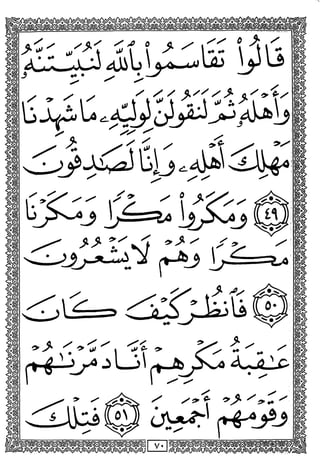 قَالُواْ تَقَاسَمُواْ بِٱللَّهِ لَنُبَيِّتَنَّهُۥ
وَأَهْلَهُۥ ثُمَّ لَنَقُولَنَّ لِوَلِيِّهِۦ مَا شَهِدْنَا
مَهْلِكَ أَهْلِهِۦ وَإِنَّا لَصَٰدِقُونَ
٤٩ وَمَكَرُواْ مَكْرًا وَمَكَرْنَا
مَكْرًا وَهُمْ لَا يَشْعُرُونَ
٥٠ فَٱنظُرْ كَيْفَ كَانَ
عَٰقِبَةُ مَكْرِهِمْ أَنَّا دَمَّرْنَٰهُمْ
وَقَوْمَهُمْ أَجْمَعِينَ ٥١ فَتِلْكَ
٧٠